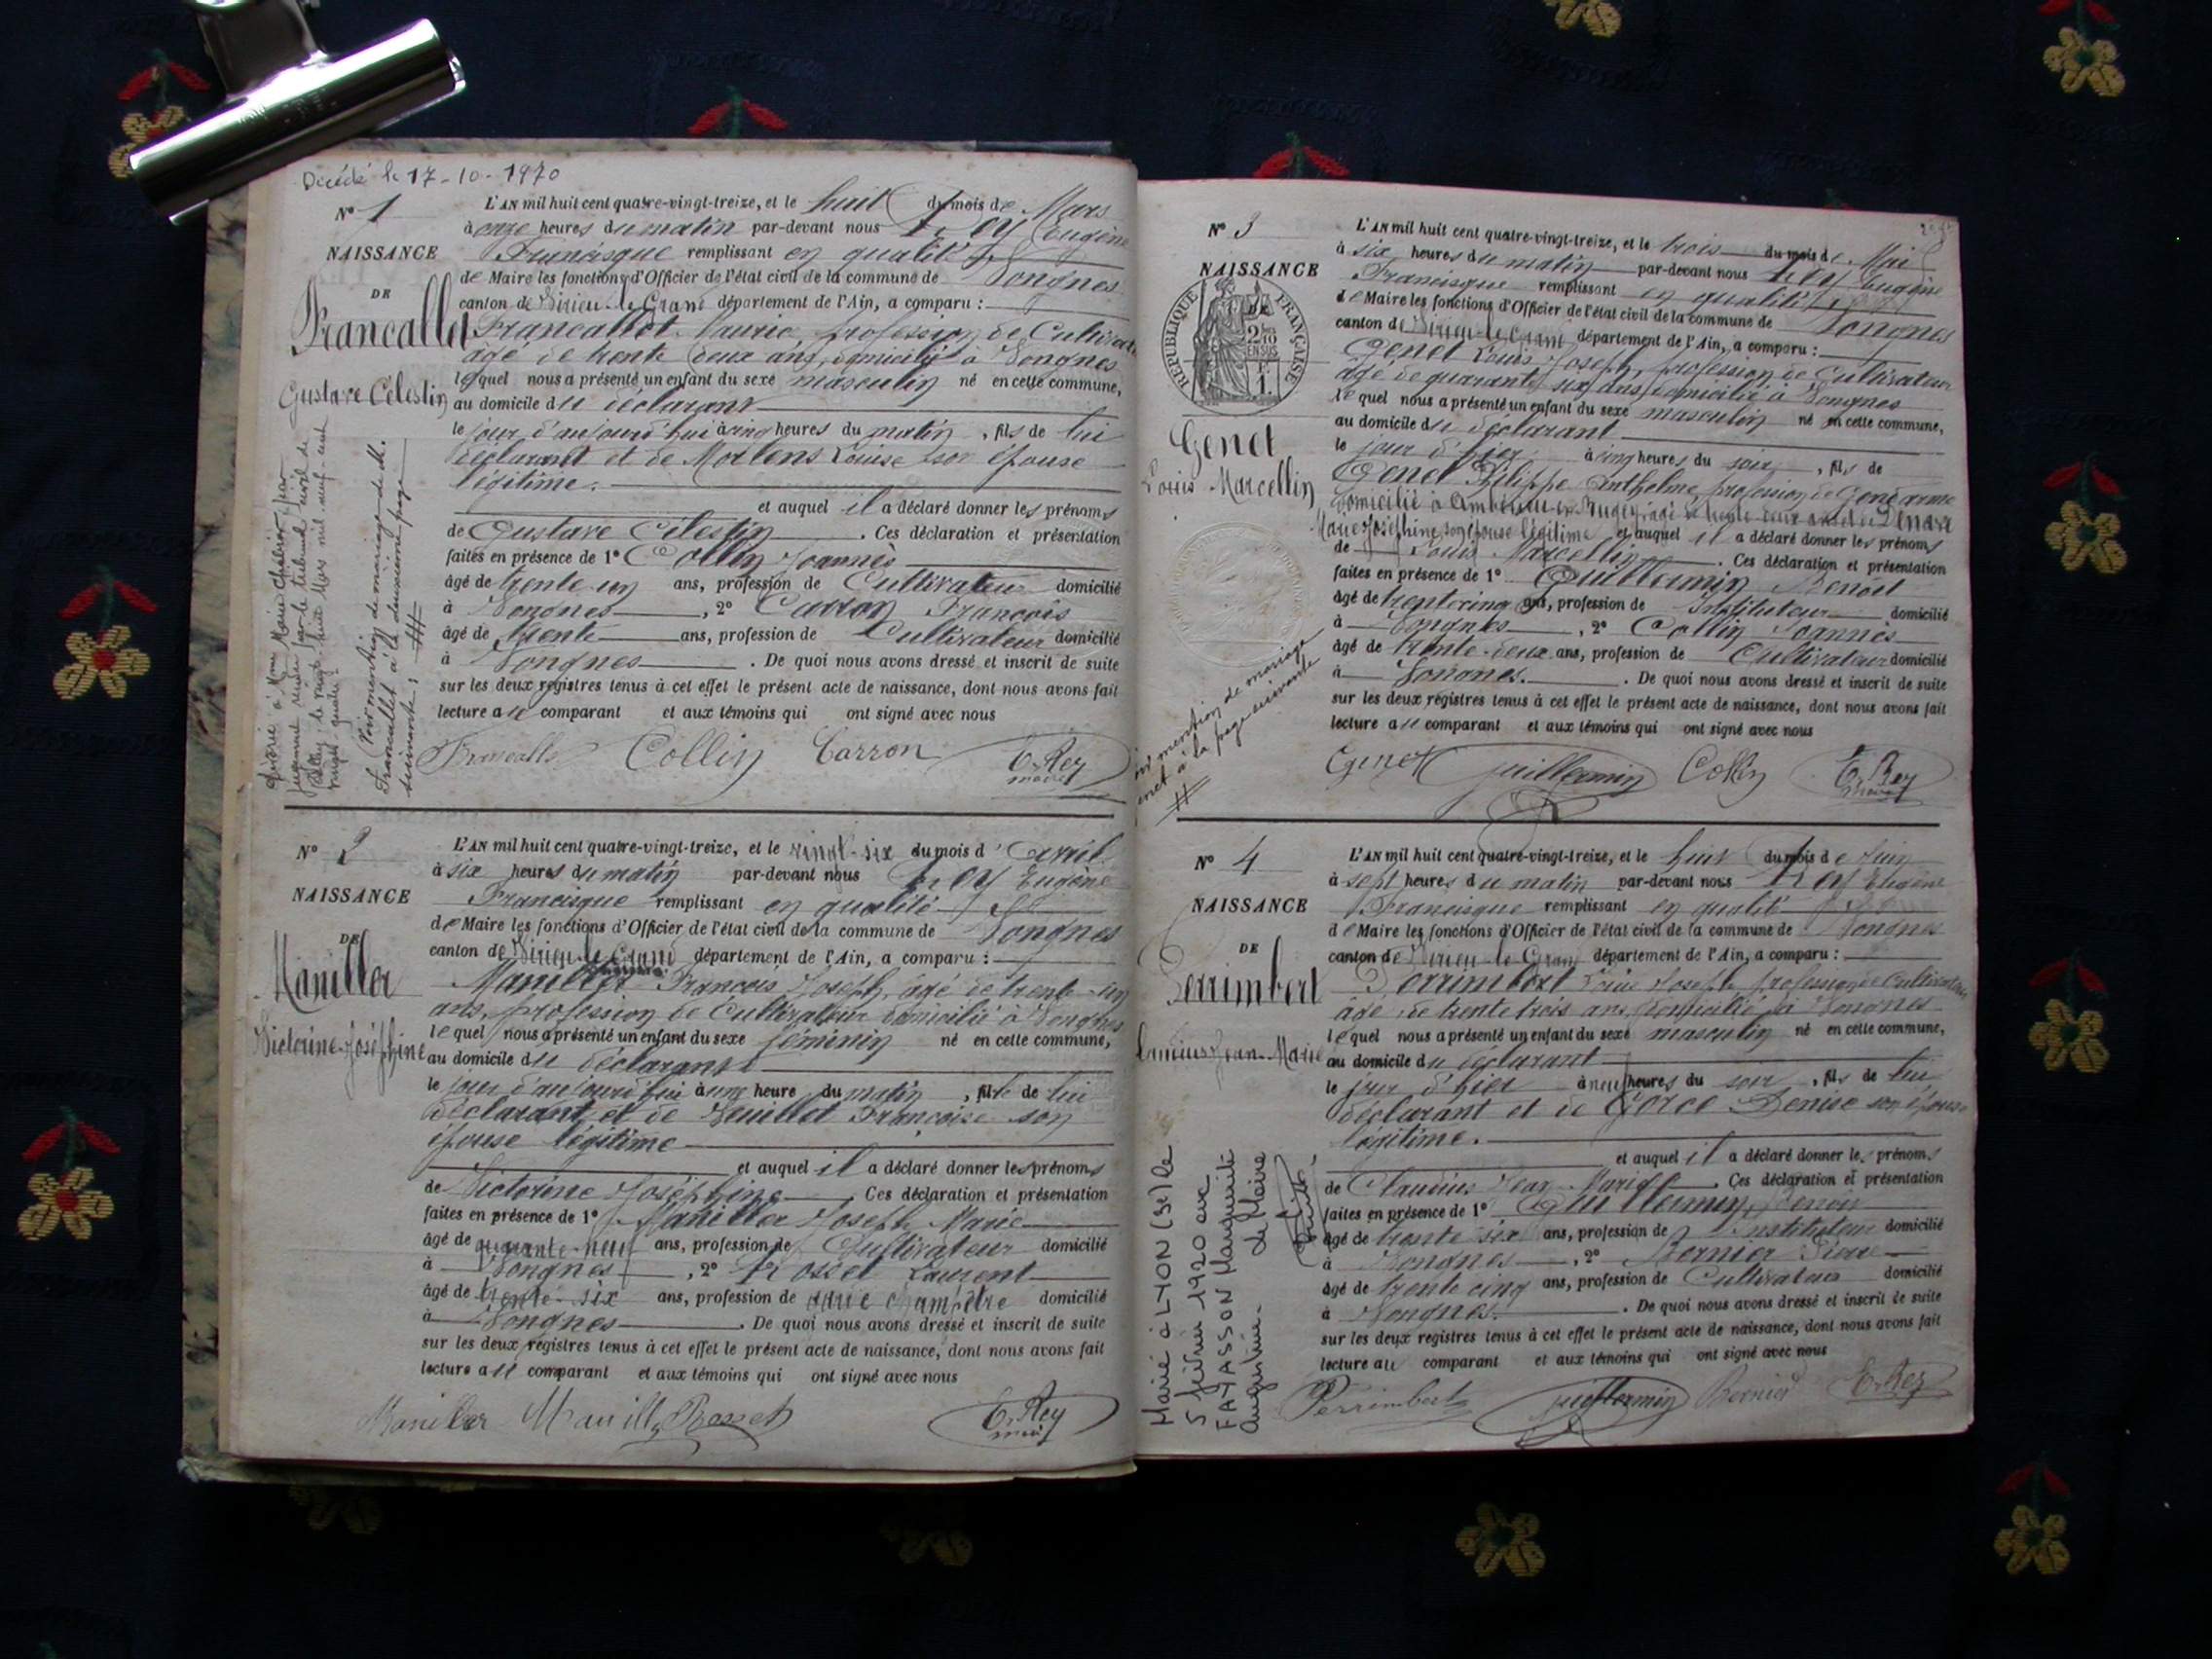 Décédé le 17-10-1970
N° 1
NAISSANCE
DE
Francallet
Gustave Célestin
L'AN mil huit cent quatre-vingt-treize, et le huit du mois de Mars
à onze heures du matin par-devant nous Rey Eugène
Francisque remplissant en qualité
de Maire les fonctions d'Officier de l'état civil de la commune de Songnes
canton de Virieu-le-Grand département de l'Ain, a comparu :
Francallet profession de Cultivateur
âgé de trente deux ans, domicilié à Songnes
lequel nous a présenté un enfant du sexe masculin né en cette commune,
au domicile du déclarant
le jour d'aujourd'hui à cinq heures du matin, fils de lui
déclarant et de Louise son épouse
légitime.
et auquel il a déclaré donner les prénoms
de Gustave Célestin. Ces déclaration et présentation
faites en présence de 1° Collin Joannès
âgé de trente un ans, profession de Cultivateur domicilié
à Songnes, 2° Carron François
âgé de trente ans, profession de Cultivateur domicilié
à Songnes. De quoi nous avons dressé et inscrit de suite
sur les deux registres tenus à cet effet le présent acte de naissance, dont nous avons fait
lecture au comparant et aux témoins qui ont signé avec nous
Collin Carron E. Rey
maire
Voir mention de mariage de M.
Francallet à la deuxième page
suivante :
N° 2
NAISSANCE
DE
Maniller
Victorine-Joséphine
L'AN mil huit cent quatre-vingt-treize, et le vingt-six du mois d'Avril
à six heures du matin par-devant nous Rey Eugène
Francisque remplissant en qualité
de Maire les fonctions d'Officier de l'état civil de la commune de Songnes
canton de Virieu-le-Grand département de l'Ain, a comparu :
Maniller François Joseph, âgé de trente-un
ans, profession de Cultivateur domicilié à Songnes
lequel nous a présenté un enfant du sexe féminin né en cette commune,
au domicile du déclarant
le jour d'aujourd'hui à une heure du matin, fille de lui
déclarant et de Françoise son
épouse légitime
et auquel il a déclaré donner les prénoms
de Victorine Joséphine. Ces déclaration et présentation
faites en présence de 1° Maniller Joseph Marie
âgé de quarante-neuf ans, profession de Cultivateur domicilié
à Songnes, 2° Rosset Laurent
âgé de trente-six ans, profession de garde champêtre domicilié
à Songnes. De quoi nous avons dressé et inscrit de suite
sur les deux registres tenus à cet effet le présent acte de naissance, dont nous avons fait
lecture au comparant et aux témoins qui ont signé avec nous
Maniller Maniller Rosset E. Rey
maire
N° 3
NAISSANCE
DE
RÉPUBLIQUE FRANÇAISE
2/10
EN SUS
1 F.
Genet
Louis Marcellin
L'AN mil huit cent quatre-vingt-treize, et le trois du mois de Mai
à six heures du matin par-devant nous Rey Eugène
Francisque remplissant en qualité
de Maire les fonctions d'Officier de l'état civil de la commune de Songnes
canton de Virieu-le-Grand département de l'Ain, a comparu :
Genet Louis Joseph, profession de Cultivateur
âgé de quarante six ans, domicilié à Songnes
lequel nous a présenté un enfant du sexe masculin né en cette commune,
au domicile du déclarant
le jour d'hier à cinq heures du soir, fils de
Genet Philippe Anthelme, profession de Gendarme
domicilié à Ambérieu-en-Bugey, âgé de trente deux ans et de
Marie Joséphine son épouse légitime et auquel il a déclaré donner les prénoms
de Louis Marcellin. Ces déclaration et présentation
faites en présence de 1° Guillermin Benoit
âgé de trente cinq ans, profession de Instituteur domicilié
à Songnes, 2° Collin Joannès
âgé de trente-deux ans, profession de Cultivateur domicilié
à Songnes. De quoi nous avons dressé et inscrit de suite
sur les deux registres tenus à cet effet le présent acte de naissance, dont nous avons fait
lecture au comparant et aux témoins qui ont signé avec nous
Genet Guillermin Collin E. Rey
maire
mention de mariage
à la page suivante
N° 4
NAISSANCE
DE
Perrimbert
Claudius Jean-Marie
L'AN mil huit cent quatre-vingt-treize, et le huit du mois de Juin
à sept heures du matin par-devant nous Rey Eugène
Francisque remplissant en qualité
de Maire les fonctions d'Officier de l'état civil de la commune de Songnes
canton de Virieu-le-Grand département de l'Ain, a comparu :
Perrimbert Joseph, profession de Cultivateur
âgé de trente trois ans, domicilié à Songnes
lequel nous a présenté un enfant du sexe masculin né en cette commune,
au domicile du déclarant
le jour d'hier à neuf heures du soir, fils de lui
déclarant et de Gorce Denise son épouse
légitime.
et auquel il a déclaré donner les prénoms
de Claudius Jean Marie. Ces déclaration et présentation
faites en présence de 1° Guillermin Benoit
âgé de trente six ans, profession de Instituteur domicilié
à Songnes, 2° Bernier
âgé de trente cinq ans, profession de Cultivateur domicilié
à Songnes. De quoi nous avons dressé et inscrit de suite
sur les deux registres tenus à cet effet le présent acte de naissance, dont nous avons fait
lecture au comparant et aux témoins qui ont signé avec nous
Perrimbert Guillermin Bernier E. Rey
Marié à LYON (3e) le
5 février 1920 avec
FAYASSON Marguerite
Augustine. Le Maire